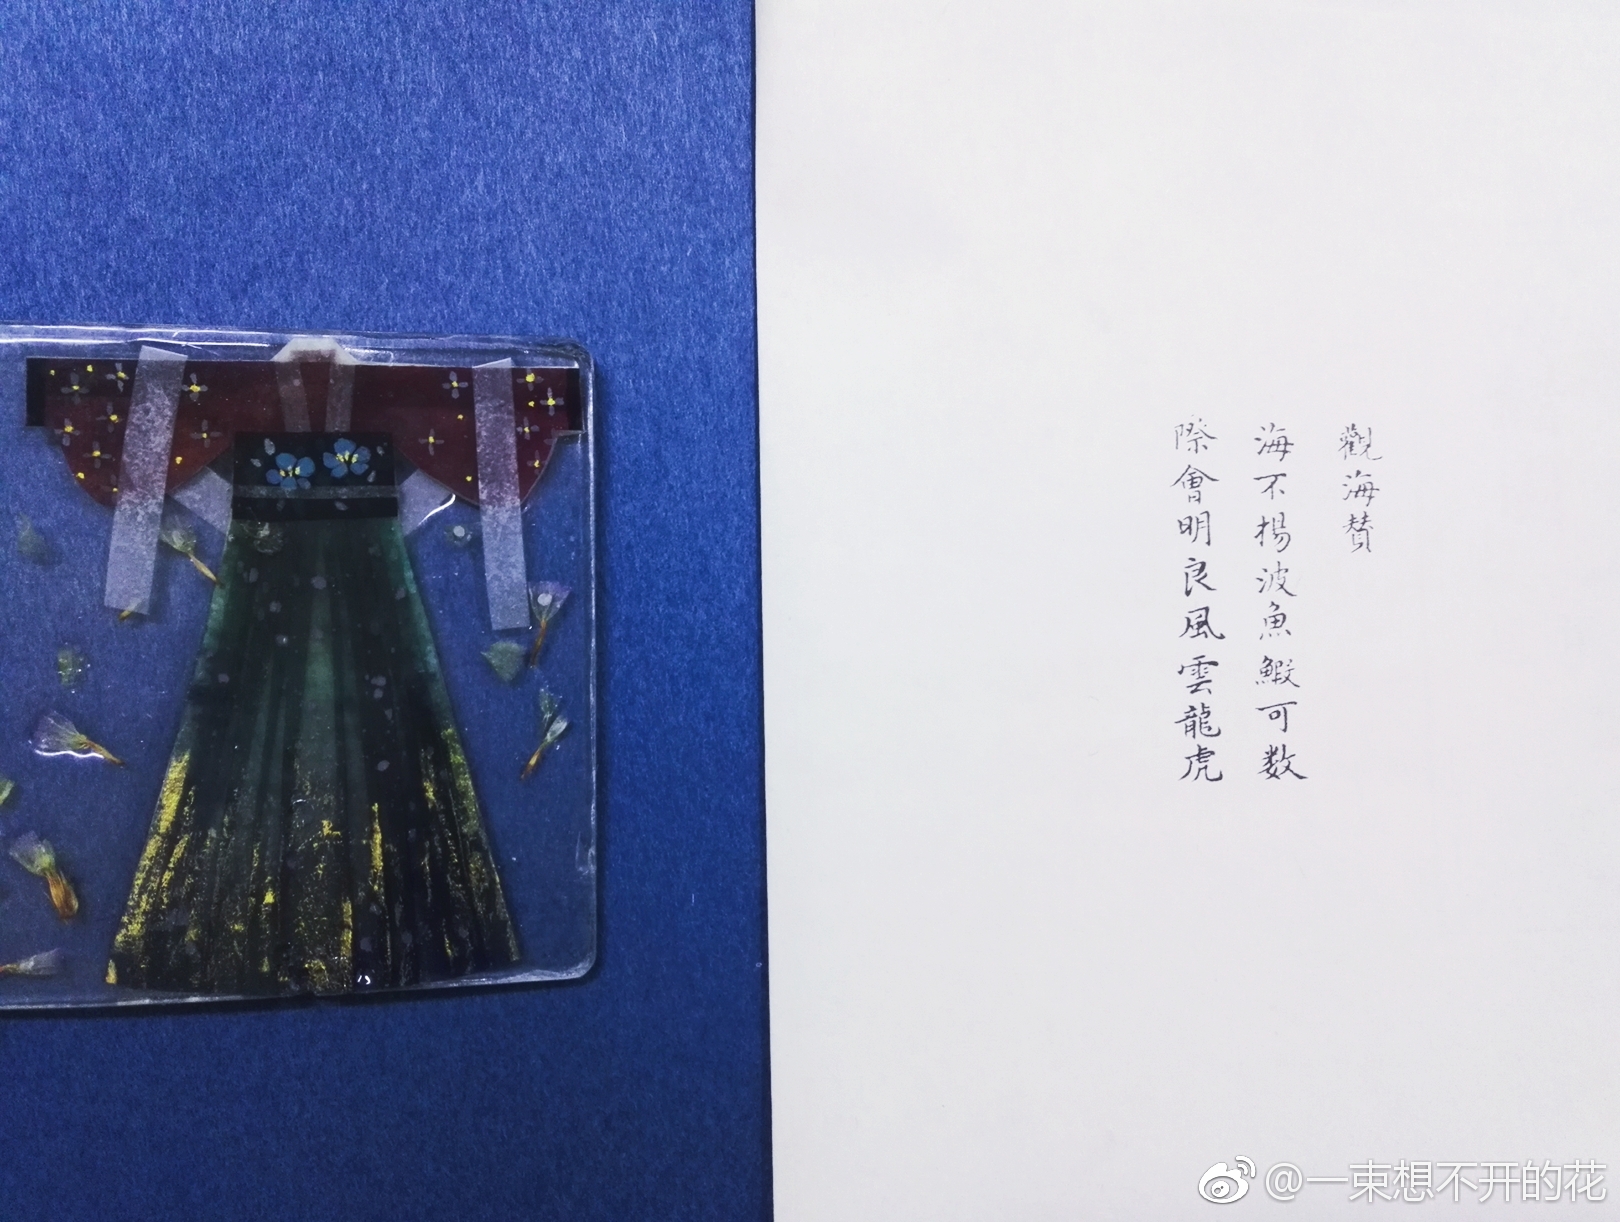 觀海贊
海不揚波魚鰕可数
際會明良風雲龍虎
@一束想不开的花